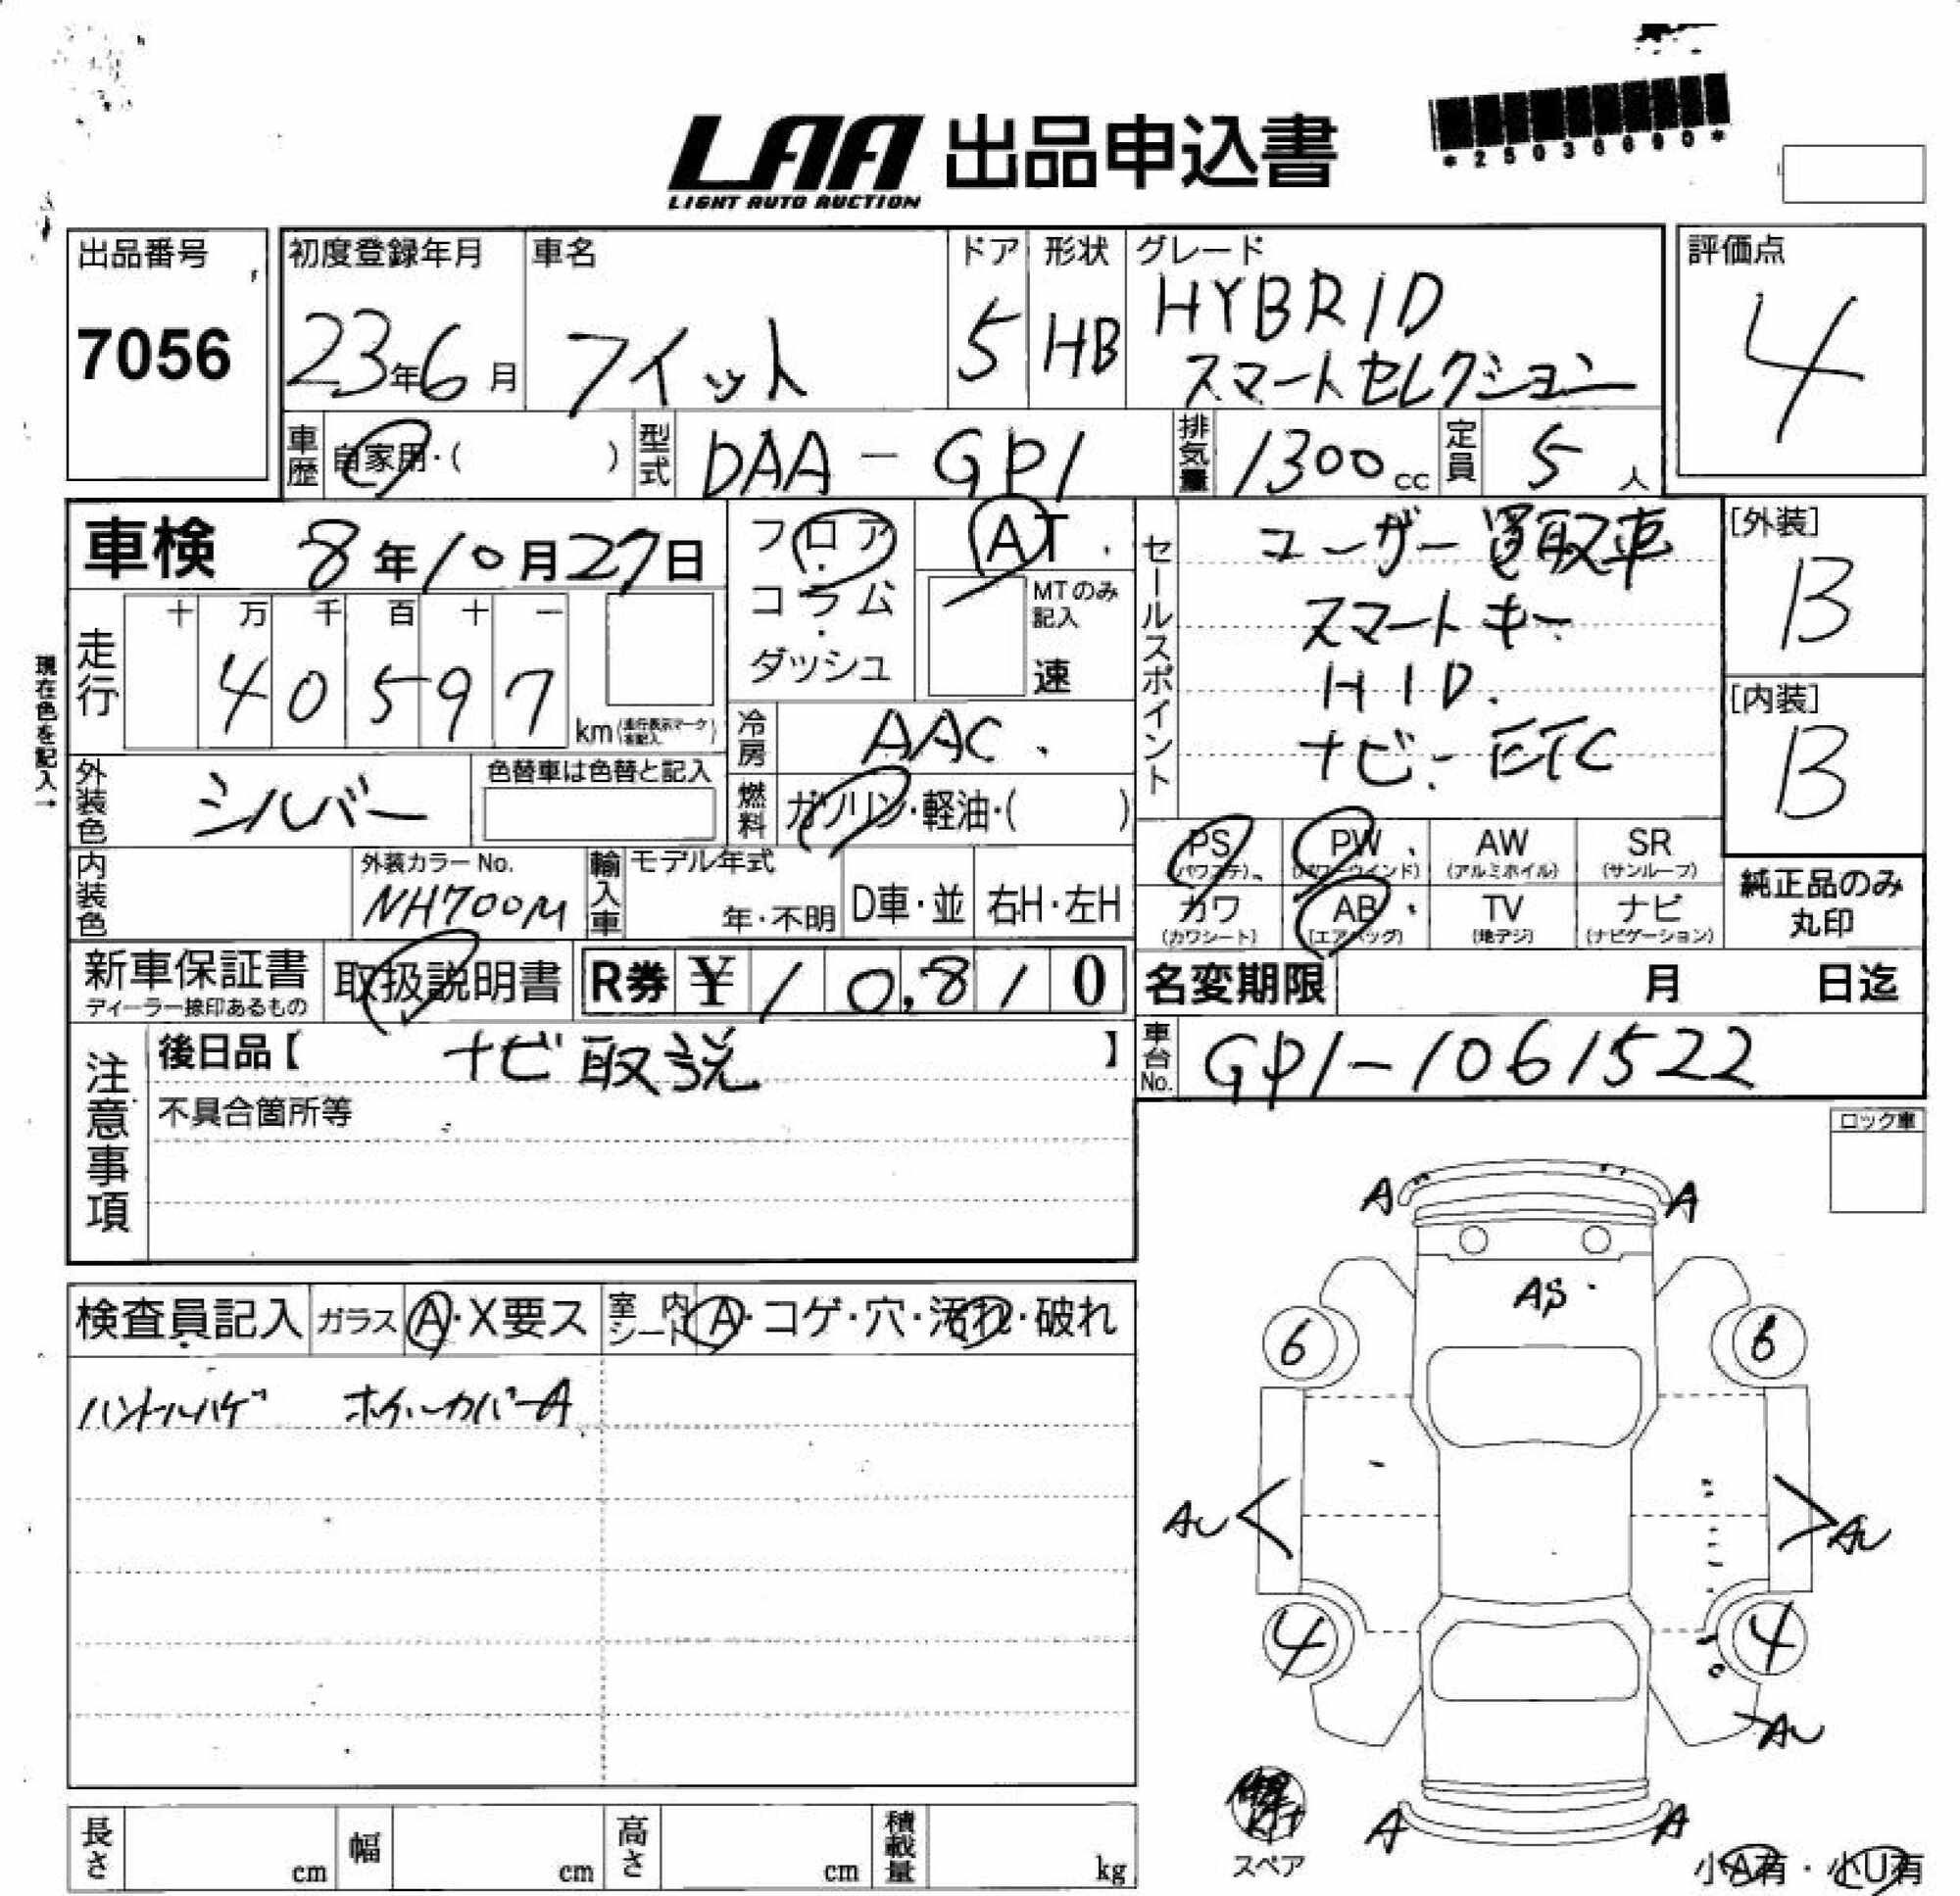 LAA 出品申込書
LIGHT AUTO AUCTION
*25036690*
出品番号
7056
初度登録年月
23年6月
車名
フィット
ドア
5
形状
HB
グレード
HYBRID
スマートセレクション
評価点
4
車歴 自家用・( )
型式 DAA-GP1
排気量 1300cc
定員 5人
車検 8年10月27日
フロア・コラム・ダッシュ
AT
MTのみ記入
速
セールスポイント
ユーザー買取車
スマートキー
HID.
ナビ・ETC
[外装]
B
[内装]
B
現在色を記入→
走行
十 万 千 百 十 一
4 0 5 9 7
km
冷房 AAC
外装色 シルバー
色替車は色替と記入
燃料 ガソリン・軽油・( )
PS (パワステ)
PW (パワーウインド)
AW (アルミホイル)
SR (サンルーフ)
カワ (カワシート)
AB (エアバッグ)
TV (地デジ)
ナビ (ナビゲーション)
純正品のみ
丸印
内装色
外装カラーNo.
NH700M
輸入車
モデル年式
年・不明
D車・並
右H・左H
新車保証書
ディーラー捺印あるもの
取扱説明書
R券 ¥10,810
名変期限 月 日迄
車台No. GP1-1061522
注意事項
後日品【 ナビ取説 】
不具合箇所等
ロック車
検査員記入
ガラス A・X要ス
室内シート A・コゲ・穴・汚れ・破れ
ハンドルハゲ ホイールカバーA
A A
AS
6 6
AU AU
4 4
AU
A A
スペア
小A有・小U有
長さ cm
幅 cm
高さ cm
積載量 kg